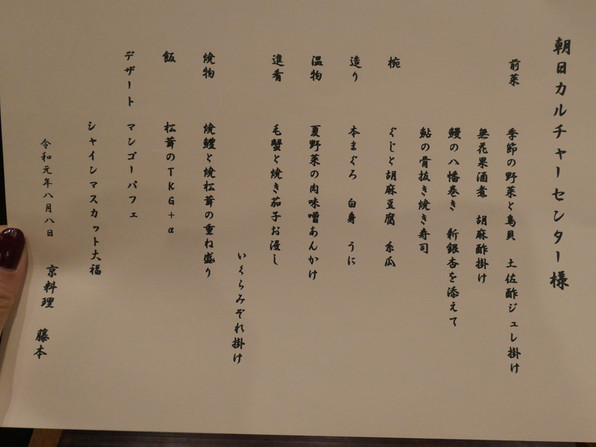 朝日カルチャーセンター様
前菜 季節の野菜と鳥貝 土佐酢ジュレ掛け
無花果酒煮 胡麻酢掛け
鰻の八幡巻き 新銀杏を添えて
鮎の骨抜き焼き寿司
椀 ぐじと胡麻豆腐 糸瓜
造り 本まぐろ 白身 うに
温物 夏野菜の肉味噌あんかけ
進肴 毛蟹と焼き茄子お浸し
いくらみぞれ掛け
焼物 焼鱧と焼松茸の重ね盛り
飯 松茸のTKG+α
デザート マンゴーパフェ
シャインマスカット大福
令和元年八月八日 京料理 藤本